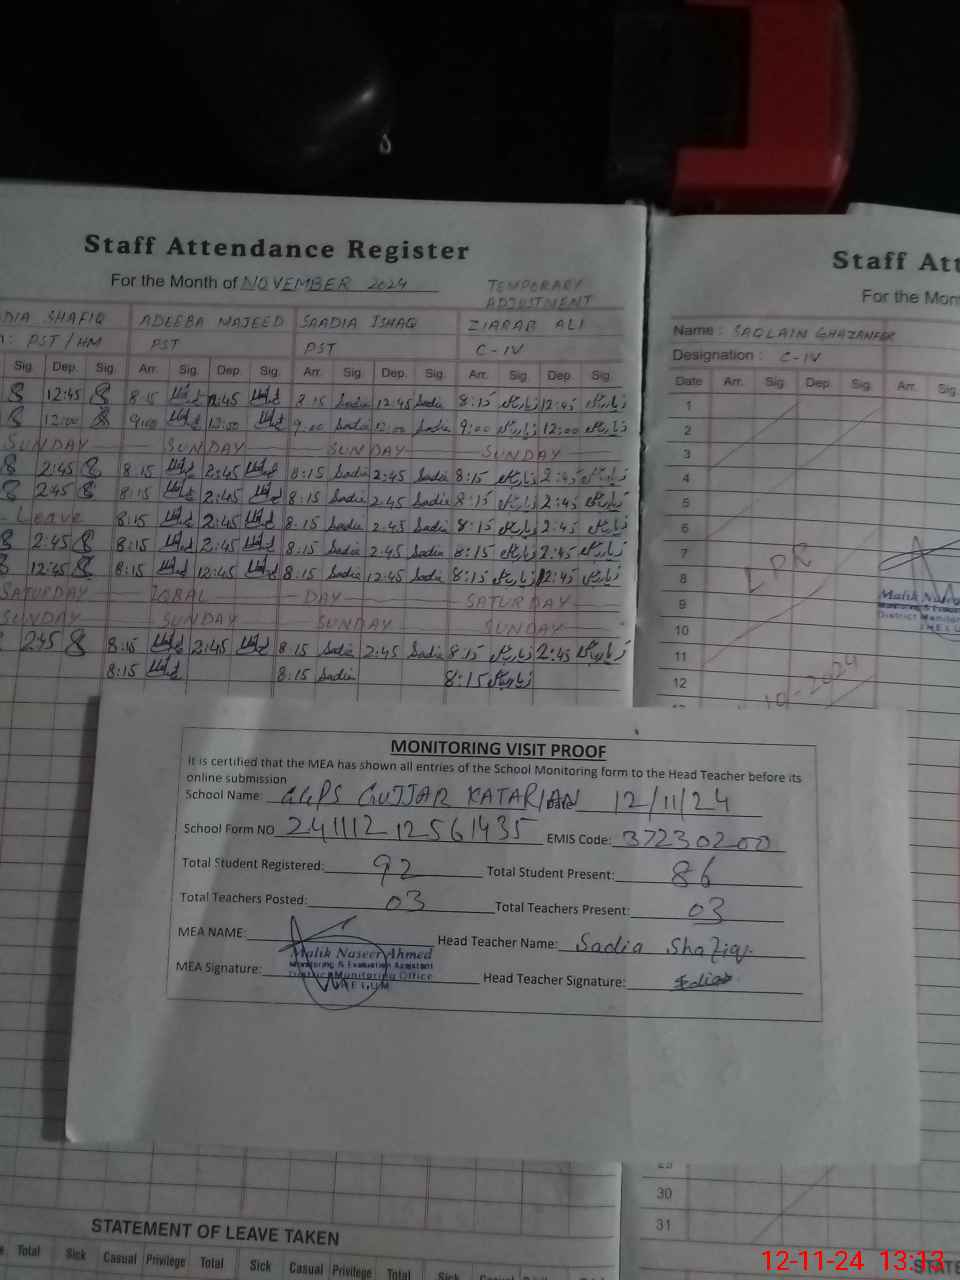 Staff Attendance Register
For the Month of NOVEMBER 2024
TEMPORARY
ADJUSTMENT
DIA SHAFIQ ADEEBA MAJEED SAADIA ISHAQ ZIARAB ALI
: PST/HM PST PST C-IV
Sig. Dep. Sig. Arr. Sig. Dep. Sig. Arr. Sig. Dep. Sig. Arr. Sig. Dep. Sig.
12:45 8:15 12:45 8:15 Sadia 12:45 Sadia 8:15 زیارب 12:45 زیارب
12:00 9:00 12:00 9:00 Sadia 12:00 Sadia 9:00 زیارب 12:00 زیارب
SUNDAY SUNDAY SUNDAY SUNDAY
2:45 8:15 2:45 8:15 Sadia 2:45 Sadia 8:15 زیارب 2:45 زیارب
2:45 8:15 2:45 8:15 Sadia 2:45 Sadia 8:15 زیارب 2:45 زیارب
Leave 8:15 2:45 8:15 Sadia 2:45 Sadia 8:15 زیارب 2:45 زیارب
2:45 8:15 2:45 8:15 Sadia 2:45 Sadia 8:15 زیارب 2:45 زیارب
12:45 8:15 12:45 8:15 Sadia 12:45 Sadia 8:15 زیارب 12:45 زیارب
SATURDAY IQBAL DAY SATURDAY
SUNDAY SUNDAY SUNDAY SUNDAY
2:45 8:15 2:45 8:15 Sadia 2:45 Sadia 8:15 زیارب 2:45 زیارب
8:15 8:15 Sadia 8:15 زیارب
Staff Att
For the Mon
Name : SAQLAIN GHAZANFER
Designation : C-IV
Date Arr. Sig. Dep. Sig. Arr. Sig.
1
2
3
4
5
6
7
8
9
10
11
12
LPR
10-2024
Malik Nas
District Monitor
MONITORING VISIT PROOF
It is certified that the MEA has shown all entries of the School Monitoring form to the Head Teacher before its
online submission
School Name: GGPS GUJJAR KATARIAN 12/11/24
School Form NO 241112 12561435 EMIS Code: 37230200
Total Student Registered: 92 Total Student Present: 86
Total Teachers Posted: 03 Total Teachers Present: 03
MEA NAME: Head Teacher Name: Sadia Shafiq
Malik Naseer Ahmed
Monitoring & Evaluation Assistant
District Monitoring Office
JHELUM
MEA Signature: Head Teacher Signature: Sadia
30
31
STATEMENT OF LEAVE TAKEN
Total Sick Casual Privilege Total Sick Casual Privilege Total Sick Casual Privilege Total
STATE
12-11-24 13:13